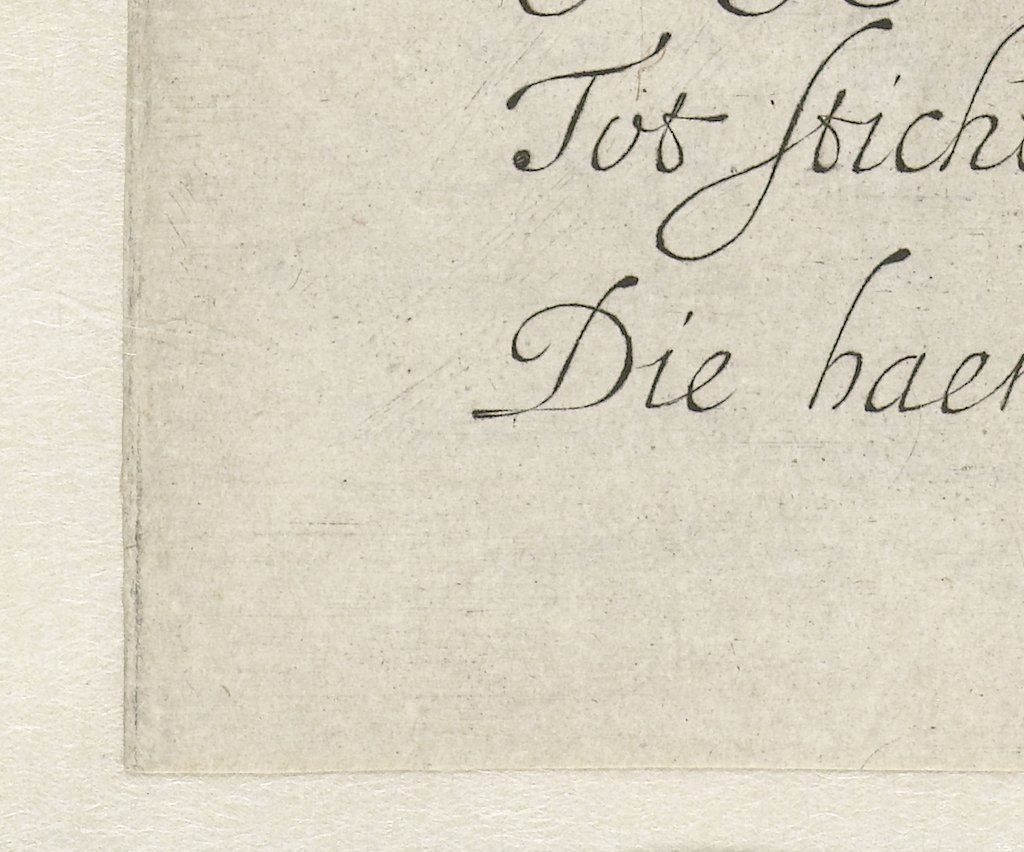 Tot sticht
Die haer